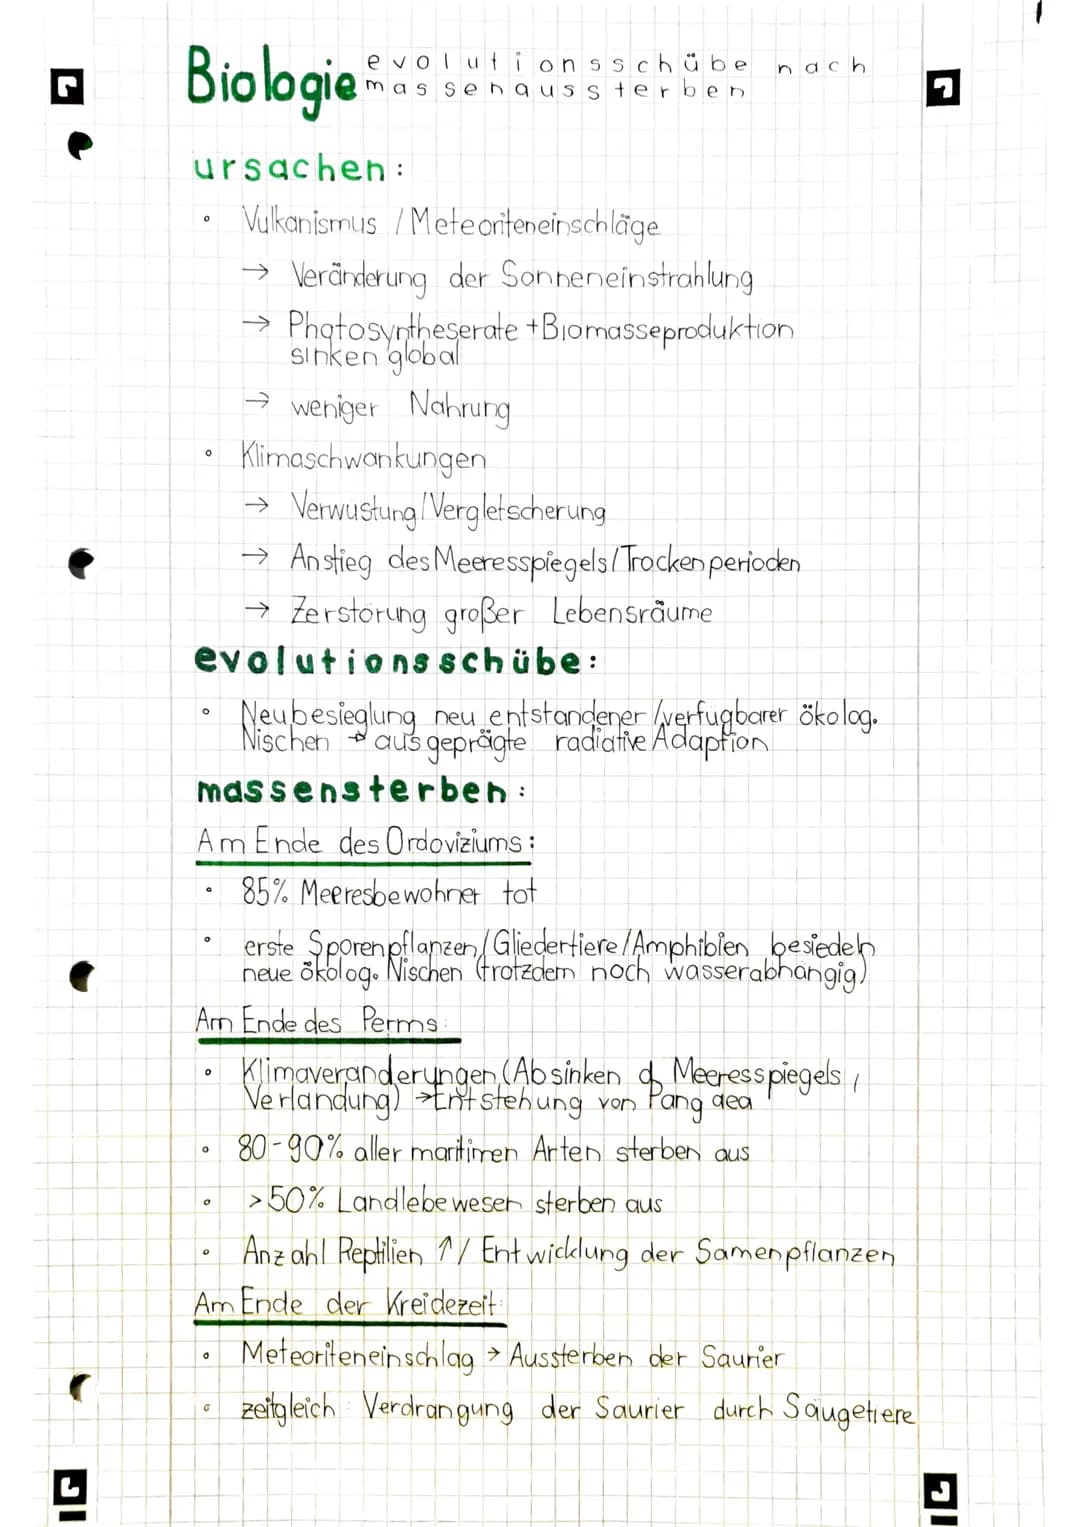 Biologie evolutionsschübe nach
massenaussterben
ursachen:
• Vulkanismus / Meteoriteneinschläge
→ Veränderung der Sonneneinstrahlung
→ Photosyntheserate + Biomasseproduktion
sinken global
→ weniger Nahrung
• Klimaschwankungen
→ Verwustung/Vergletscherung
→ Anstieg des Meeresspiegels/Trockenperioden
→ Zerstörung großer Lebensräume
evolutionsschübe:
• Neubesieglung neu entstandener/verfugbarer ökolog.
Nischen → ausgeprägte radiative Adaption
massensterben:
Am Ende des Ordoviziums:
• 85% Meeresbewohner tot
• erste Sporenpflanzen/Gliedertiere/Amphibien besiedeln
neue ökolog. Nischen (trotzdem noch wasserabhängig)
Am Ende des Perms:
• Klimaveränderungen (Absinken d. Meeresspiegels,
Verlandung) → Entstehung von Pangaea
• 80-90% aller maritimen Arten sterben aus
• >50% Landlebewesen sterben aus
• Anzahl Reptilien ↑ / Entwicklung der Samenpflanzen
Am Ende der Kreidezeit:
• Meteoriteneinschlag → Aussterben der Saurier
• zeitgleich: Verdrangung der Saurier durch Säugetiere